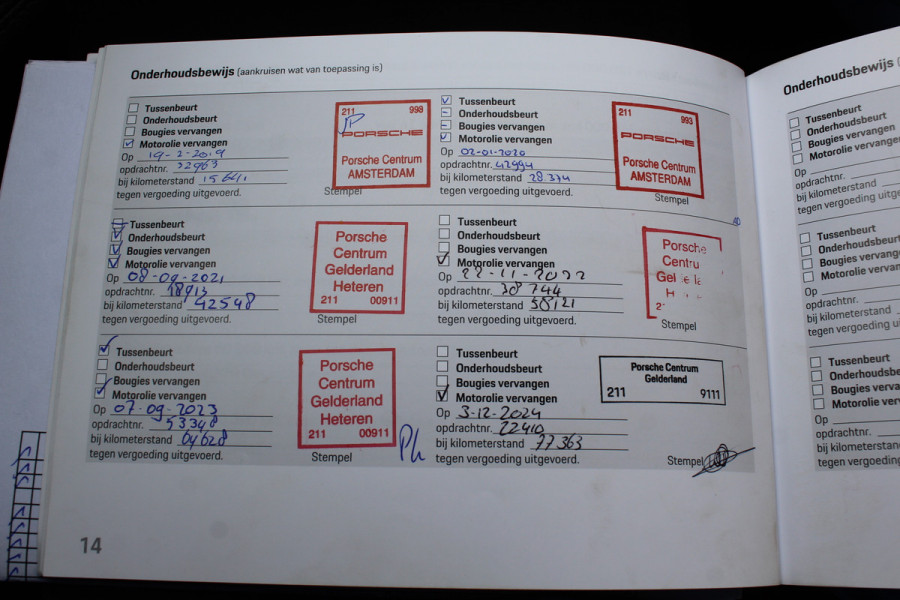 Onderhoudsbewijs (aankruisen wat van toepassing is)
Tussenbeurt
Onderhoudsbeurt
Bougies vervangen
Motorolie vervangen
Op 19-2-2019
opdrachtnr. 32963
bij kilometerstand 15641
tegen vergoeding uitgevoerd.
211 998
PORSCHE
Porsche Centrum
AMSTERDAM
Stempel
Tussenbeurt
Onderhoudsbeurt
Bougies vervangen
Motorolie vervangen
Op 02-01-2020
opdrachtnr. 42994
bij kilometerstand 28.374
tegen vergoeding uitgevoerd.
211 993
PORSCHE
Porsche Centrum
AMSTERDAM
Stempel
Tussenbeurt
Onderhoudsbeurt
Bougies vervangen
Motorolie vervangen
Op 08-09-2021
opdrachtnr. 18913
bij kilometerstand 42548
tegen vergoeding uitgevoerd.
Porsche
Centrum
Gelderland
Heteren
211 00911
Stempel
Tussenbeurt
Onderhoudsbeurt
Bougies vervangen
Motorolie vervangen
Op 22-11-2022
opdrachtnr. 38744
bij kilometerstand 58121
tegen vergoeding uitgevoerd.
Porsche
Stempel
Tussenbeurt
Onderhoudsbeurt
Bougies vervangen
Motorolie vervangen
Op 07-09-2023
opdrachtnr. 53348
bij kilometerstand 64628
tegen vergoeding uitgevoerd.
Porsche
Centrum
Gelderland
Heteren
211 00911
Stempel
Tussenbeurt
Onderhoudsbeurt
Bougies vervangen
Motorolie vervangen
Op 3-12-2024
opdrachtnr. 22410
bij kilometerstand 77363
tegen vergoeding uitgevoerd.
Porsche Centrum
Gelderland
211 9111
Stempel
14
Onderhoudsbewijs
Tussenbeurt
Onderhoudsbeurt
Bougies vervangen
Motorolie vervangen
Op
opdrachtnr.
bij kilometerstand
tegen vergoeding
Tussenbeurt
Onderhoudsbeurt
Bougies vervangen
Motorolie vervangen
Op
opdrachtnr.
bij kilometerstand
tegen vergoeding
Tussenbeurt
Onderhoudsbeurt
Bougies vervangen
Motorolie
Op
opdrachtnr.
bij kilometerstand
tegen vergoeding